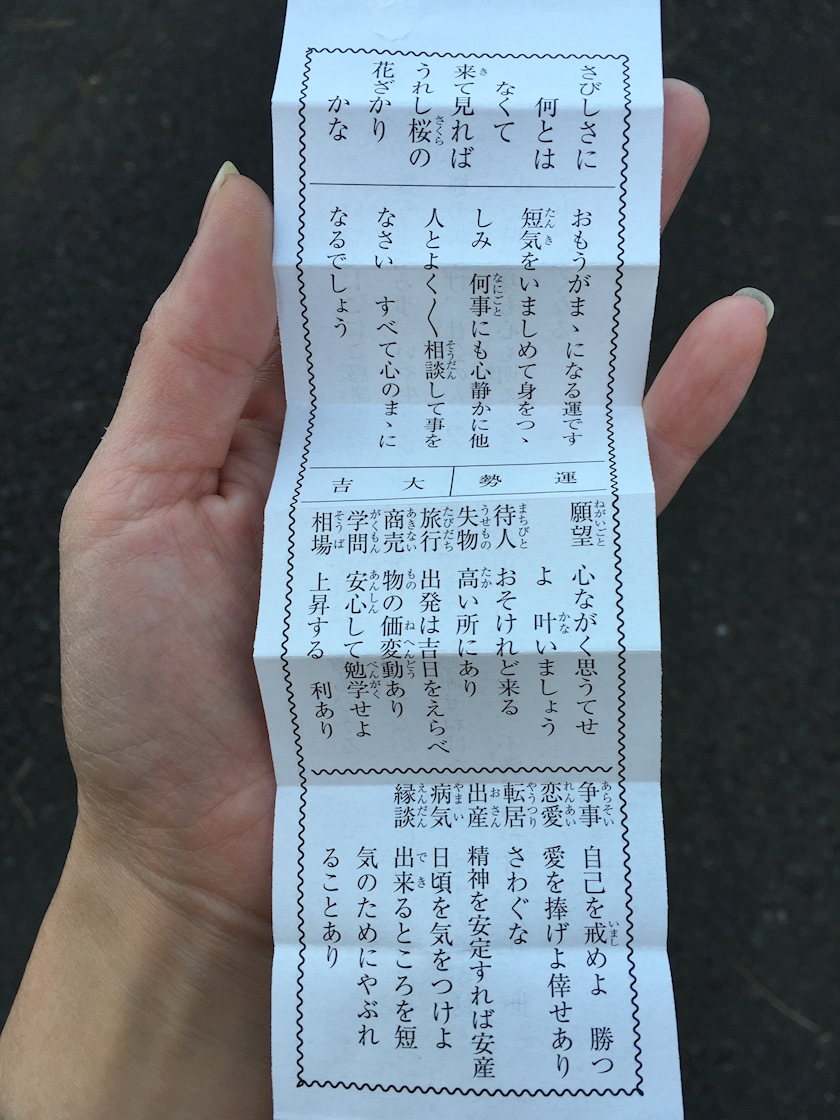 さびしさに
何とは
なくて
来て見れば
うれし桜の
花ざかり
かな
おもうがまゝになる運です
短気をいましめて身をつゝ
しみ 何事にも心静かに他
人とよく〱相談して事を
なさい すべて心のまゝに
なるでしょう
運勢 大吉
願望 心ながく思うてせ
よ 叶いましょう
待人 おそけれど来る
失物 高い所にあり
旅行 出発は吉日をえらべ
商売 物の価変動あり
学問 安心して勉学せよ
相場 上昇する 利あり
争事 自己を戒めよ 勝つ
恋愛 愛を捧げよ倖せあり
転居 さわぐな
出産 精神を安定すれば安産
病気 日頃を気をつけよ
縁談 出来るところを短
気のためにやぶれ
ることあり